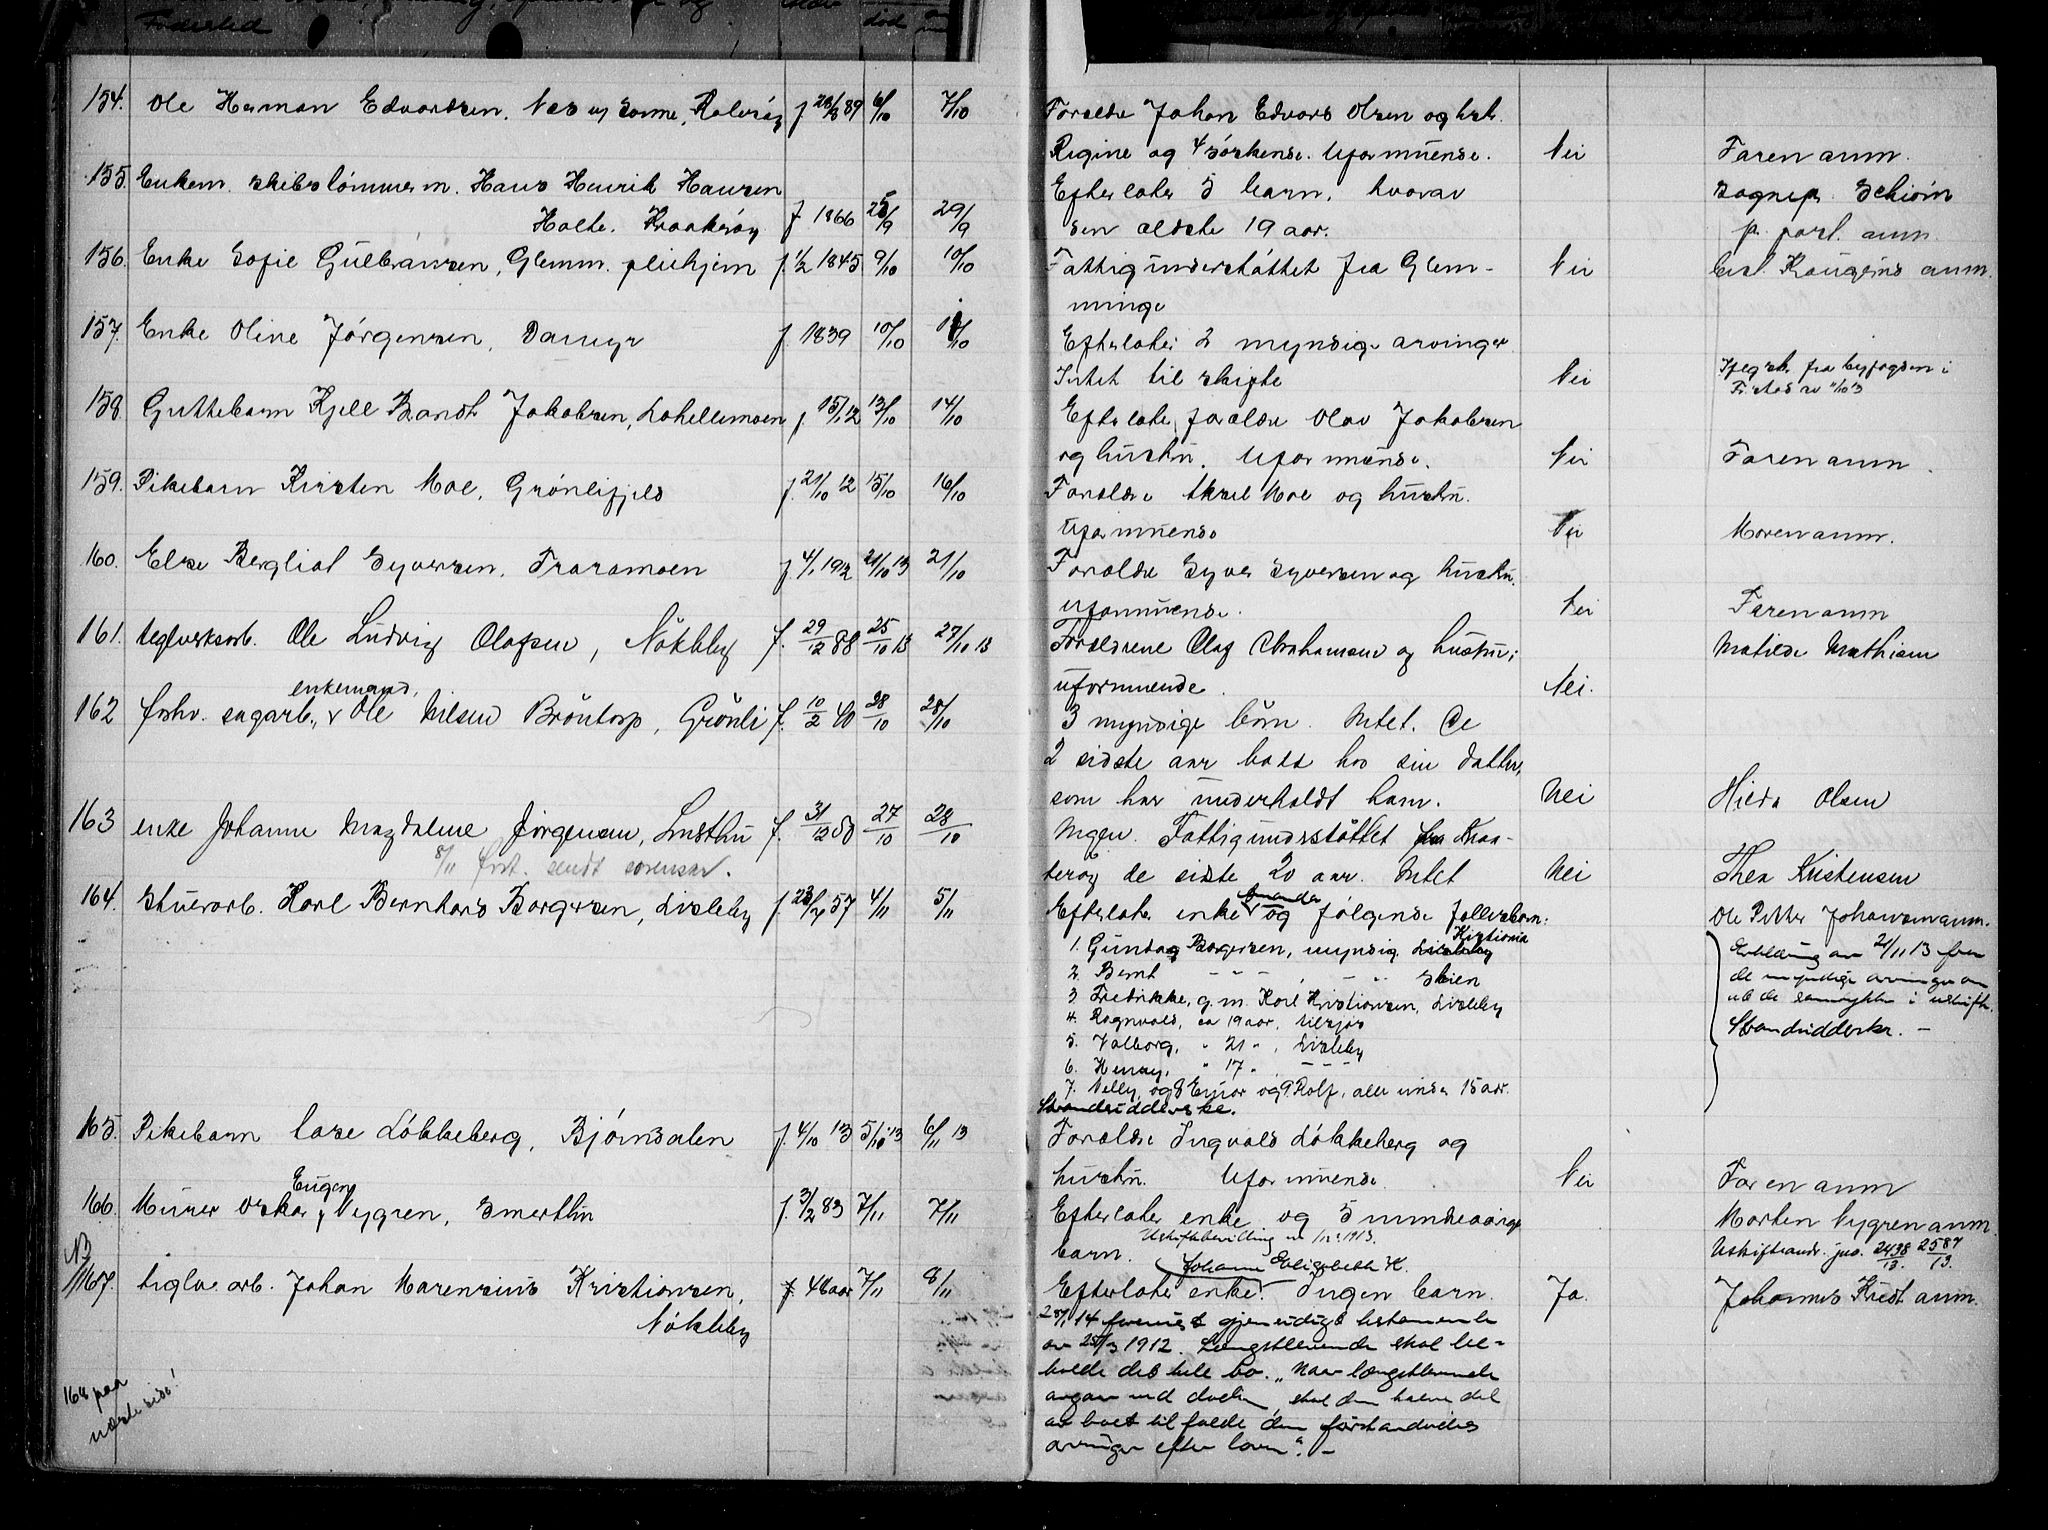 Fødested
død
154. Ole Herman Edvardsen. Næs ys sonne, Rolvsøy f 28/8 89 6/10 7/10
Forældre Johan Edvard Olsen og hst.
Regine og 4 søskende. Uformuende. Nei Faren anm.
155. Enkem. skibstømmerm. Hans Henrik Hansen
Holte. Kraakerøy f 1866 25/9 29/9
Efterlater 5 barn, hvorav
den ældste 19 aar.
Sognepr. Schiøin
p. post. anm.
156. Enke Sofie Gulbransen, Glemm. pleiehjem f. 1/2 1845 9/10 10/10
Fattigunderstøttet fra Glem-
minge
Nei anm.
157. Enke Oline Jørgensen, Damyr f. 1839 10/10
Efterlater 2 myndige arvinger
Intet til skifte Nei
fra byfogden i
F.stad av 11/10 13
158. Guttebarn Kjell Brandt Jakobsen, Lahellemoen f. 15/1 12 13/10 14/10
Efterlater forældre Olav Jakobsen
og hustru. Uformuende. Nei Faren anm.
159. Pikebarn Kirsten Moe, Grønlifjeld f. 21/10 12 15/10 16/10
Forældre Aksel Moe og hustru.
Uformuende Nei Moren anm.
160. Else Bergliot Syversen, Traramoen f. 4/1 1912 21/10 13 21/10
Forældre Syver Syversen og hustru.
uformuende. Nei Faren anm
161. teglverksarb. Ole Ludvig Olafsen, Nøkleby f. 29/12 88 25/10 13 27/10 13
Forældrene Olaf Abrahamsen og hustru;
uformuende. Nei.
Matilde Mathisen
enkemand,
162 forhv. sagarb., Ole Nilsen Brøntorp, Grønli f. 10/2 40 28/10 28/10
3 myndige børn. Intet. De
2 sidste aar boet hos sin datter,
som har underholdt ham. Nei Hilda Olsen
163 enke Johanne Magdalene Jørgensen, Lusthu f. 31/12 50 27/10 28/10
Ingen. Fattigunderstøttet fra Kraa-
kerøy de sidste 20 aar. Intet Nei Thea Kristensen
8/11 fort. sendt sorensk.
164. Stuerarb. Karl Bernhard Borgersen, Lisleby f. 23/7 57 4/11 5/11
Efterlater enke Amanda og følgende fællesbarn:
Ole Petter Johansen anm.
1. Gunda Borgersen, myndig. Kristiania Lisleby
2. Bernt - - - , - " - Skien
3. Fredrikke, g. m. Karl Kristiansen, Lisleby
4. Ragnvald, ca 19 aar, tilsjøs
5. Valborg, " 21 " , Lisleby
6. Henry, " 17 " , - - -
7. Nelly, og 8 Einar og 9. Rolf, alle under 15 aar.
Strandsidderske.
Erklæring av 21/11 13 fra
de myndige arvinger om
at de samtykker i uskifte.
Strandsidderske. -
165. Pikebarn Aase Løkkeberg, Bjørnsdalen f. 4/10 13 5/10 13 6/11 13
Forældre Ingvald Løkkeberg og
hustru. Uformuende. Nei Faren anm
Eugen
166. Murer Oskar Nygren, Smertlin f. 3/2 83 7/11 7/11
Efterlater enke og 5 mindreaarige
barn. Uskiftebevilling 1913.
Morten Nygren anm.
Uskifteandr. jno. 2438/13. 2587/13.
NB
167. teglv. arb. Johan Marensius Kristiansen, 48 aar 7/11 8/11
Nøkleby
Johanne Elisabeth K.
Efterlater enke. Ingen barn. Ja. Johannes Kvist anm.
28/1 14 forevist gjensidigt testamente
av 25/3 1912. Længstlevende skal be-
holde det hele bo. "Naar længstlevende
avgaar ved døden, skal den halve del
av boet tilfalde den førstavdødes
arvinger efter loven". -
168 paa
næste side!